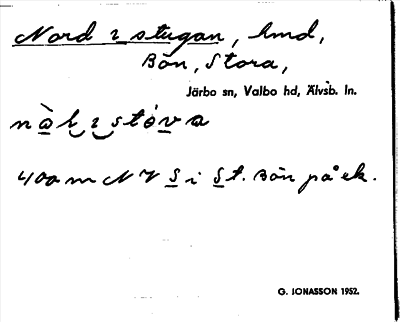 Nord i stugan, hmd,
Bön, Stora,
Järbo sn, Valbo hd, Älvsb. ln.
400 m N V S i St. Bön på ek.
G. JONASSON 1952.